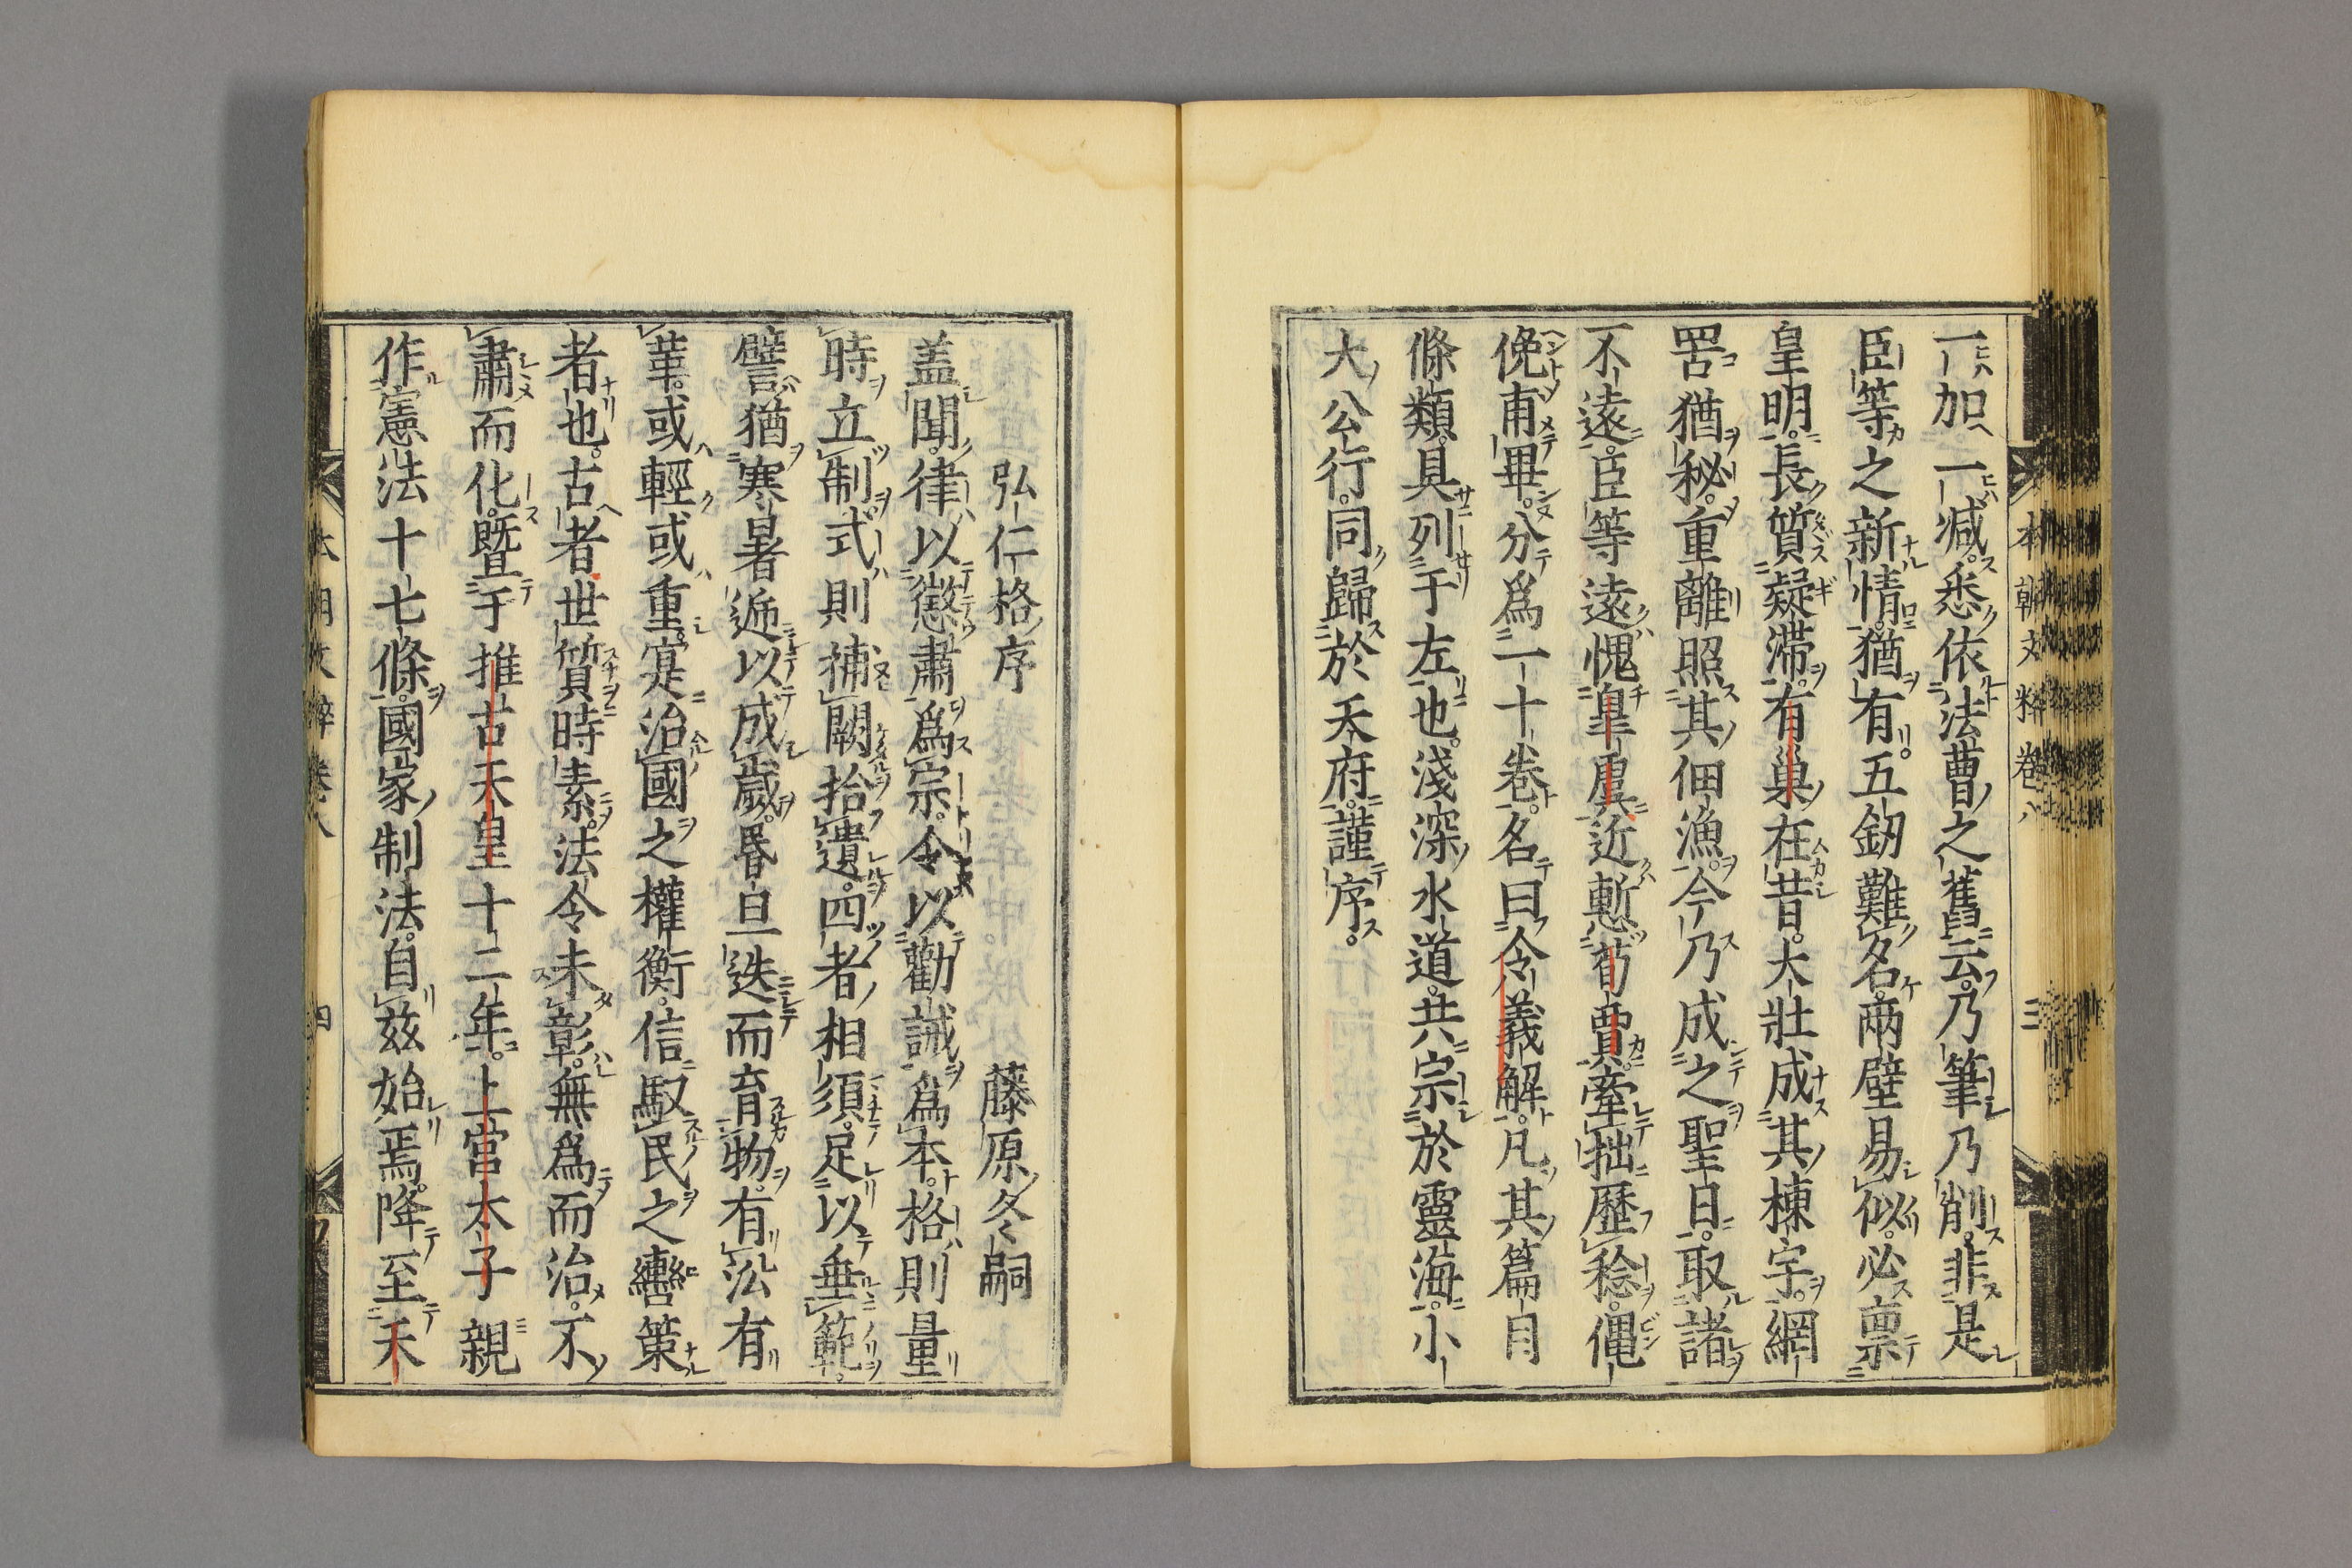 一加一減。悉依法曹之舊云。乃筆乃削。非是
臣等之新情。猶有五釼難名。兩壁易似。必稟
皇明。長質疑滯。有巢在昔。大壯成其棟宇。網
罟猶秘。重離照其佃漁。今乃成之聖日。取諸
不遠。臣等遠愧皇虞。近慙荀賈。牽拙歷稔。僶
俛甫畢。分爲一十卷。名曰令義解。凡其篇目
條類。具列于左也。淺深水道。共宗於靈海。小
大公行。同歸於天府。謹序。
本朝文粹卷八
三
弘仁格序 藤原冬嗣
盖聞。律以懲肅爲宗。令以勸誡爲本。格則量
時立制。式則補闕拾遺。四者相須。足以垂範。
譬猶寒暑遞以成歲。昬旦迭而育物。有沿有
革。或輕或重。寔治國之權衡。信馭民之轡策
者也。古者世質時素。法令未彰。無爲而治。不
肅而化。曁于推古天皇十二年。上宮太子親
作憲法十七條。國家制法。自茲始焉。降至天
本朝文粹卷八
四